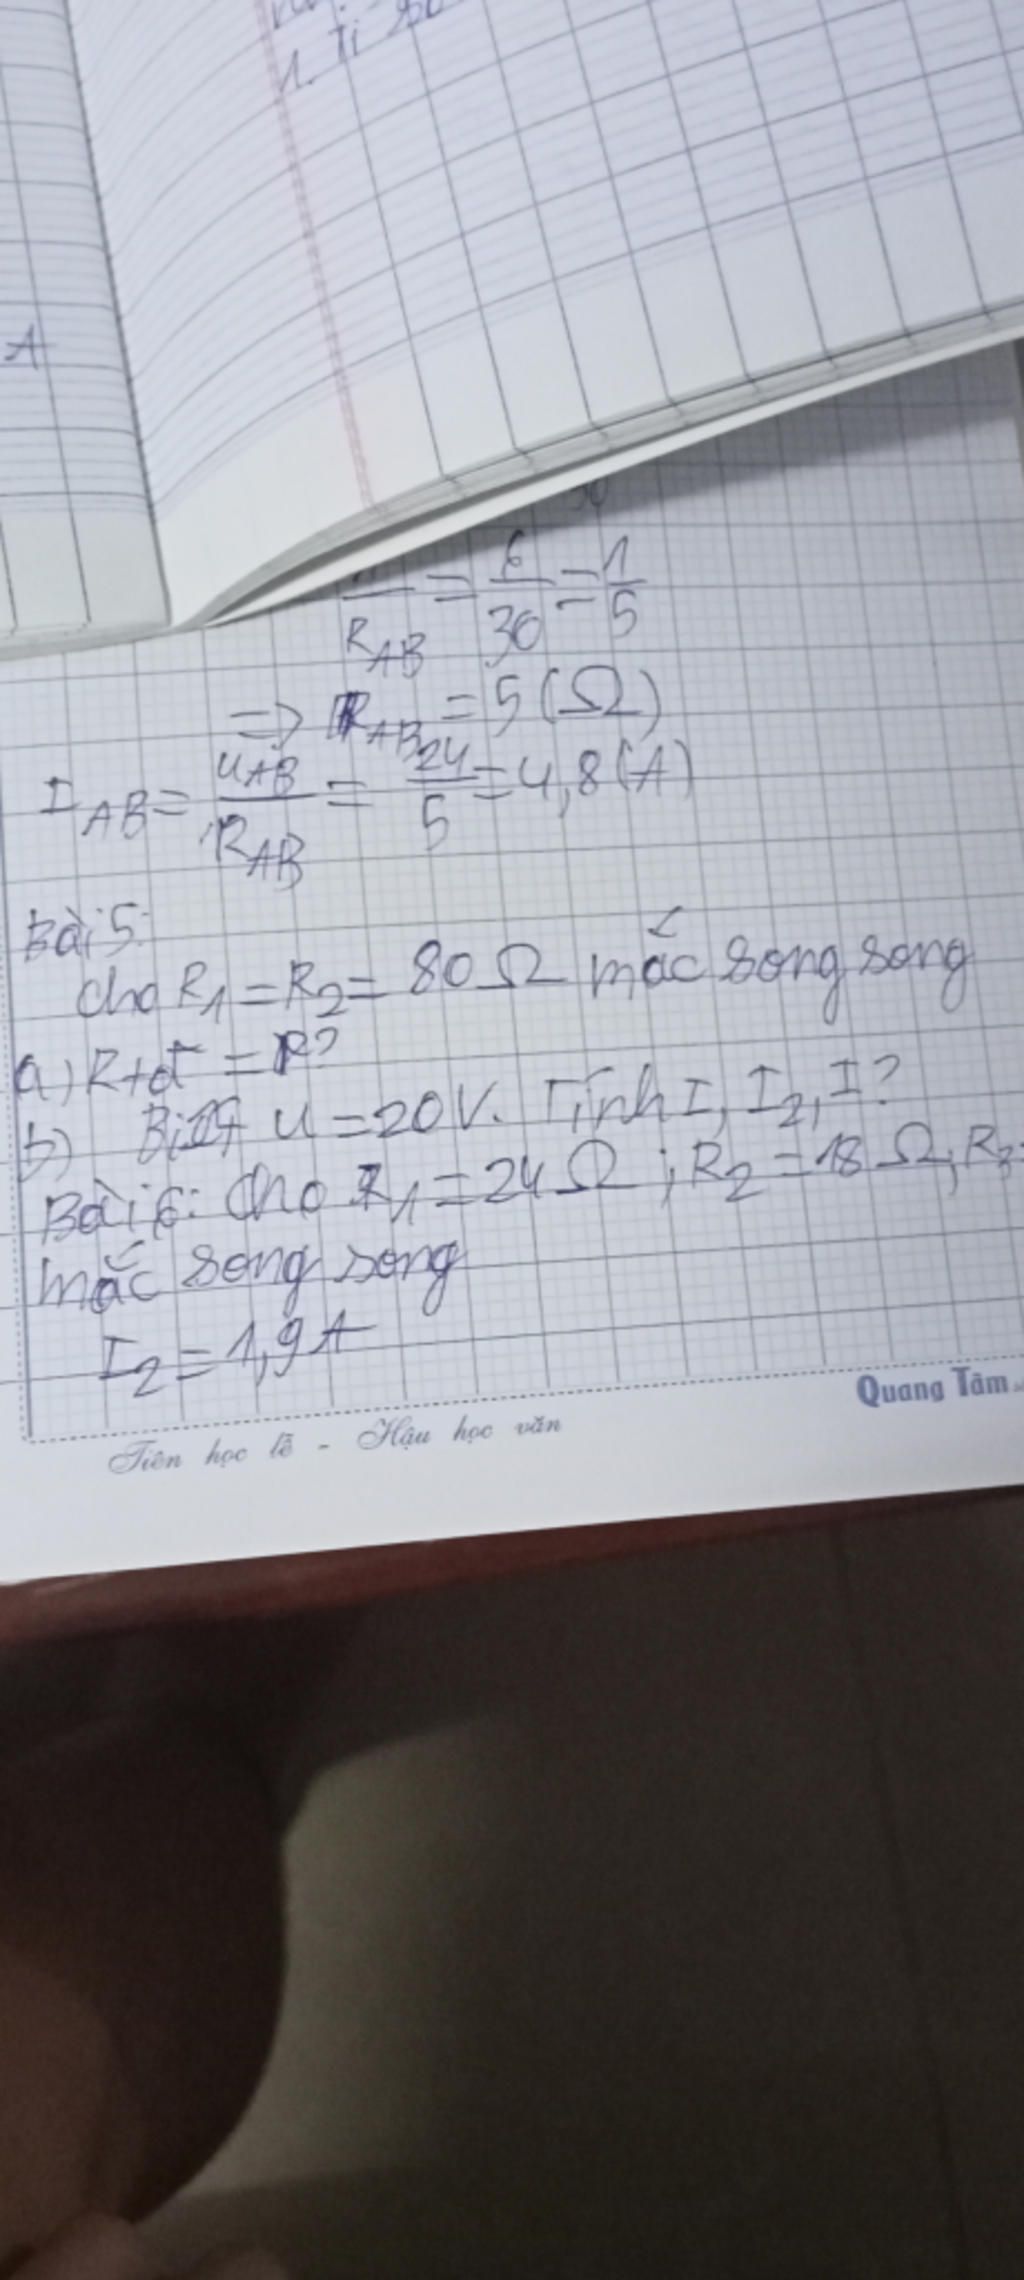 1. Tỉ số
A
R_AB = 6/30 = 1/5
=> R_AB = 5 (Ω)
I_AB = U_AB/R_AB = 24/5 = 4,8 (A)
Bài 5:
Cho R₁ = R₂ = 80 Ω mắc song song
a) R+đ = R?
b) Biết U = 20V. Tính I, I₂, I?
Bài 6: Cho R₁ = 24 Ω ; R₂ = 18 Ω, R₃ =
mắc song song
I₂ = 1,9 A
Quang Tâm
Tiên học lễ - Hậu học văn